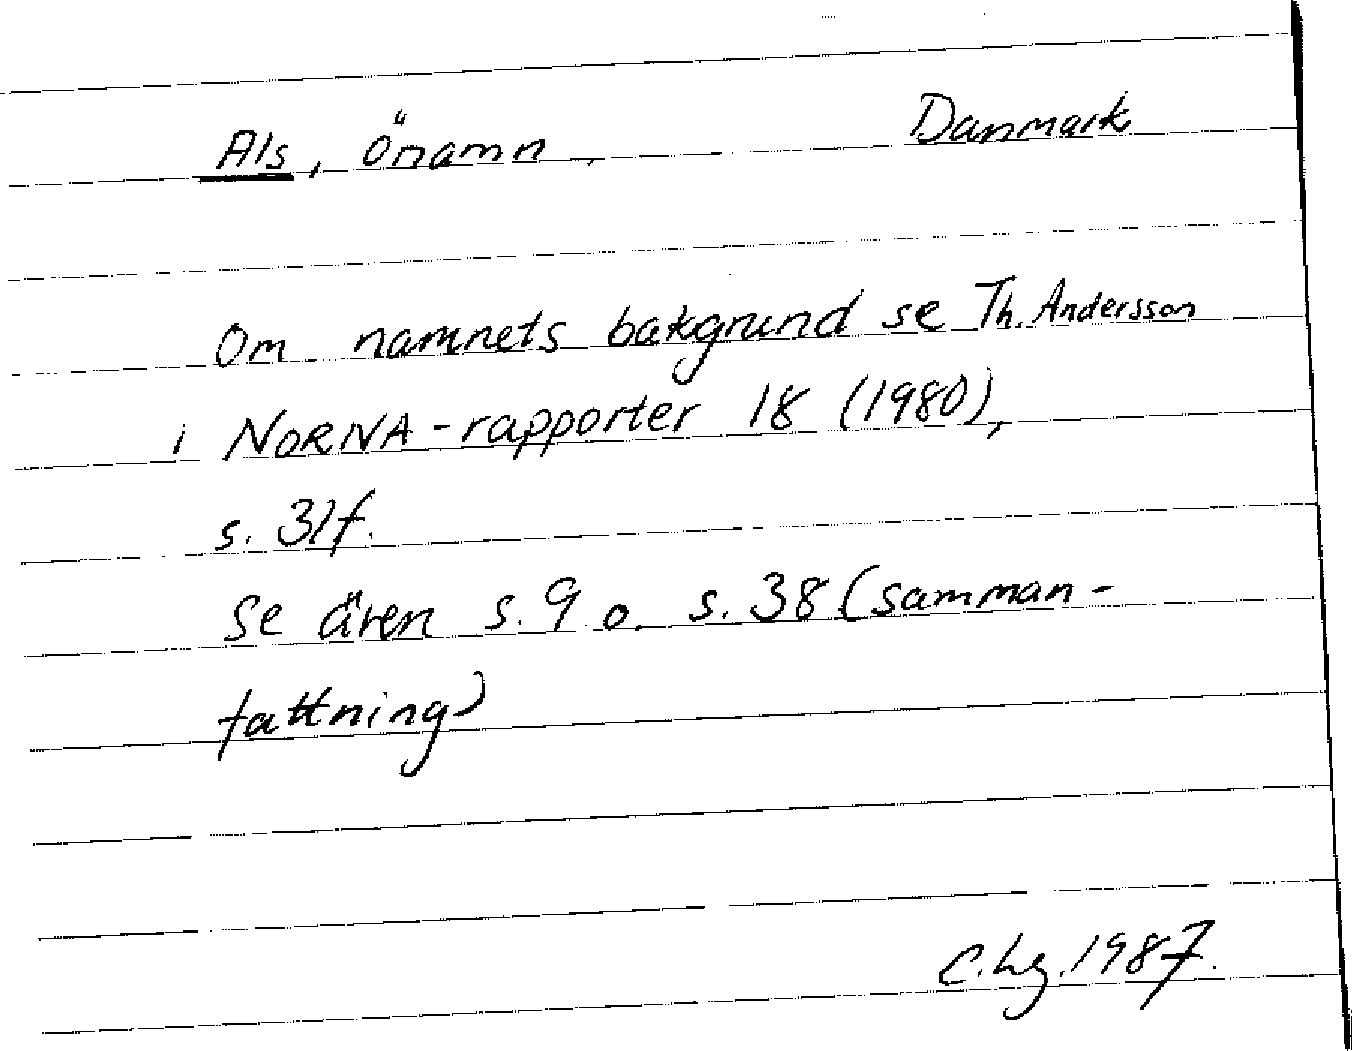 Als, önamn, Danmark
Om namnets bakgrund se Th. Andersson
i NORNA-rapporter 18 (1980),
s. 31f.
Se även s. 9 o. s. 38 (samman-
fattning)
C. Lg. 1987.